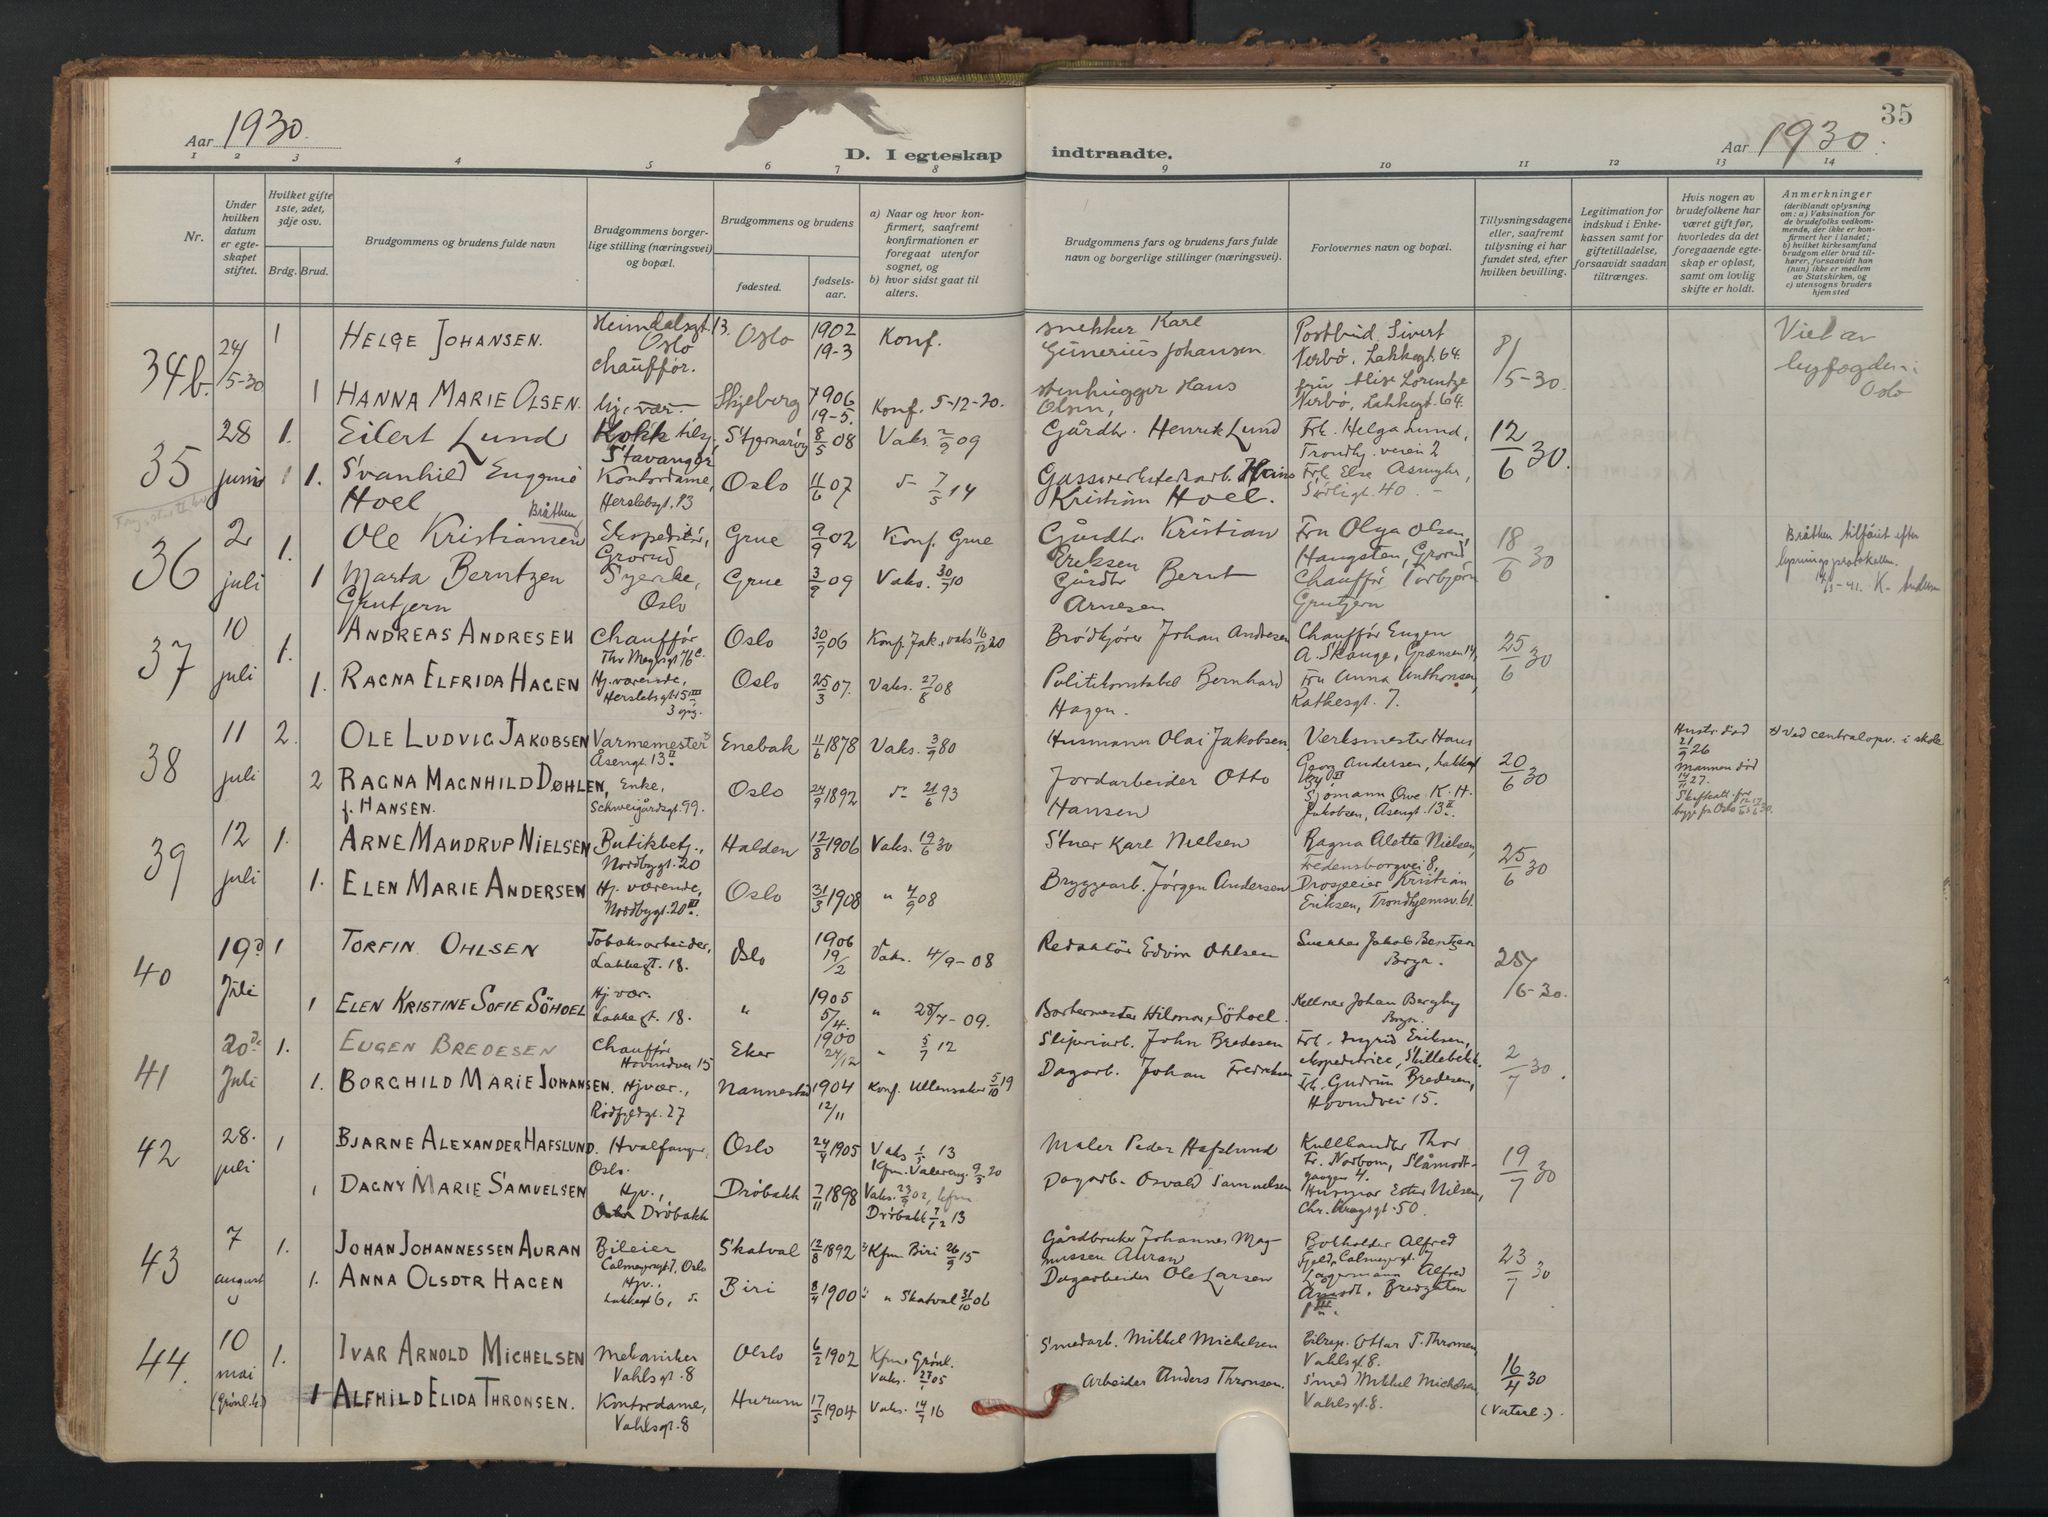 Aar 1930.
D. I egteskap indtraadte.
35
Aar 1930.
1 2 3 4 5 6 7 8 9 10 11 12 13 14
Nr.
Under hvilken datum er egteskapet stiftet.
Hvilket gifte 1ste, 2det, 3dje osv.
Brdg. Brud.
Brudgommens og brudens fulde navn
Brudgommens borgerlige stilling (næringsvei) og bopæl.
Brudgommens og brudens
fødested.
fødselsaar.
a) Naar og hvor konfirmert, saafremt konfirmationen er foregaat utenfor sognet, og
b) hvor sidst gaat til alters.
Brudgommens fars og brudens fars fulde navn og borgerlige stillinger (næringsvei).
Forlovernes navn og bopæl.
Tillysningsdagene eller, saafremt tillysning ei har fundet sted, efter hvilken bevilling.
Legitimation for indskud i Enkekassen samt for giftetilladelse, forsaavidt saadan tiltrænges.
Hvis nogen av brudefolkene har været gift før, hvorledes da det foregaaende egteskap er opløst, samt om lovlig skifte er holdt.
Anmerkninger
(deriblandt oplysning om: a) Vaksination for de brudefolks vedkommende, der ikke er konfirmert her i landet; b) hvilket kirkesamfund brudgom eller brud tilhører, forsaavidt han (hun) ikke er medlem av Statskirken, og c) utensogns bruders hjemsted
34b. 24/5-30 1 HELGE JOHANSEN. Heimdalsgt. 13. Oslo chauffør. Oslo 1902 19-3 Konf. snekker Karl Gunerius Johansen Postbud. Sivert Nerbø, Lakkegt. 64. 8/5-30. Viet av byfogden i Oslo
1 HANNA MARIE OLSEN. hj. vær. Skjeberg 1906 19-5. Konf. 5-12-20. stenhugger Hans Olsen, fru Alise Lorentze Nerbø, Lakkegt. 64.
35 28 juni 1. Eilert Lund Kokk Stavanger 8/5 08 Vaks. 2/9 09 Gårdbr. Henrik Lund Frk. Helga Lund, Trondhj. veien 2 12/6 30.
1. Svanhild Eugenie Hoel Kontordame, Herslebsgt. 13 Oslo 11/6 07 d- 7/5 14 Gassverksarb. Hans Kristian Hoel. Frk. Else Sørligt. 40.
36 2 juli 1. Ole Kristiansen Bråthen Ekspeditør, Grorud Grue 9/9 02 Konf. Grue Gårdbr. Kristian Eriksen Fru Olga Olsen, Haugsten, Grorud 18/6 30 Bråthen tilføiet efter lysningsprotokollen.
1 Marta Berntzen Grutjern Syerske, Oslo Grue 3/9 09 Vaks. 30/7 10 Gårdbr Bernt Arnesen Chauffør Torbjørn Grutjern
37 10 juli 1. ANDREAS ANDRESEN Chauffør Thv Meyersgt 76c. Oslo 30/7 06 Konf. Jak., vaks 16/12 20 Brødkjører Johan Andresen Chauffør Eugen A. Skauge, Grænsen 14, 25/6 30
1. RAGNA ELFRIDA HAGEN Hj. værende, Herslebsgt 15 III 3 opg. Oslo 25/3 07. Vaks. 27/8 08 Politikonstabel Bernhard Hagen. Fru Anna Anthonsen, Rathkesgt. 7.
38 11 juli 2. OLE LUDVIG JAKOBSEN Varmemester Åsengt. 13 II Enebak 11/6 1878 Vaks. 3/9 80 Husmann Olai Jakobsen Verksmester Hans Georg Andersen, Lakkegt 20/6 30 Hustr. død 21/9 26 Ved centralopv. i skole
2 RAGNA MAGNHILD DØHLEN, f. HANSEN. Enke, Schweigårdsgt. 99. Oslo 24/9 1892 d- 21/6 93 Jordarbeider Otto Hansen Sjømann Ove K. H. Jakobsen, Åsengt. 13 II. Mannen død 14/11 27.
39 12 juli 1. ARNE MANDRUP NIELSEN Butikbetj., Nordbygt. 20 Halden 12/8 1906 Vaks. 19/6 30 Stuer Karl Nielsen Ragna Alette Nielsen, Fredensborgvei 8, 25/6 30
1. ELEN MARIE ANDERSEN Hj. værende, Nordbygt. 20 III. Oslo 31/3 1908 " 4/9 08 Bryggearb. Jørgen Andersen Drosjeeier Kristian Eriksen, Trondhjemsv. 61.
40 19d Juli 1 TORFIN OHLSEN Tobaksarbeider, Lakkegt. 18. Oslo 1906 19/2 Vaks. 4/9-08 Redaktør Edvin Ohlsen Snekker Jakob Berntzen Bryn. 25/6-30.
1 ELEN KRISTINE SOFIE SÖHOEL Hj vær. Lakkegt. 18. " 1905 5/4. " 28/7-09. Borkermester Hilmar Söhoel. Kellner Johan Bergby Bryn.
41 20de Juli 1. EUGEN BREDESEN Chauffør Hovindvei 15 Eker 1900 24/12 " 5/7 12 Sliperiarb. John Bredesen Frk. Ingrid Eriksen, ekspeditrice, Skillebekk. 2/7 30.
1. BORGHILD MARIE JOHANSEN. Hjvær., Rødfjeldgt. 27 Nannestad 1904 12/11 Konf. Ullensaker 5/10 19 Dagarb. Johan Fredriksen Frk. Gudrun Bredesen, Hovindvei 15.
42 28. juli 1 BJARNE ALEXANDER HAFSLUND. Hvalfanger, Oslo. Oslo 24/4 1905 Vaks 1/5 13 Kfm. Valereng. 9/5 20 Maler Peder Hafslund Kullhandler Thor Fr. Norbom, Slåmodtgangen 4. 19/7 30
1 DAGNY MARIE SAMUELSEN Hjv., Drøbakk Drøbakk 7/11 1898 Vaks. 23/9 02, kfm Drøbakk 7/12 13 Dagarb. Osvald Samuelsen Husmor Ester Nilsen, Chr. Kroghsgt. 50.
43 7 august 1. JOHAN JOHANNESSEN AURAN Bileier Calmeyersgt 7, Oslo Skatval 12/8 1892 Kfm Biri 26/9 15 Gårdbruker Johannes Magnussen Auran Botholder Alfred Fjeld, Calmeyersgt. 7 23/7 30
1. ANNA OLSDTR HAGEN Hjv., Lakkegt 6, d- Biri 8/4 1900 " Skatval 31/10 06 Dagarbeider Ole Larsen Lagermann Alfred Åmodt, Bredgaten 1 III.
44. 10 mai (Grønl. k.) 1. IVAR ARNOLD MICHELSEN Mekaniker Vahlsgt. 8 Oslo 6/2 1902 Kfm Grønl. Vaks. 27/1 05 Smedarb. Mikkel Michelsen Bilrep. Ottar T. Thronsen, Vahlsgt 8. 16/4 30 (Vaterl.)
1 ALFHILD ELIDA THRONSEN. Kontordame, Vahlsgt. 8 Hurum 17/5 1904 Vaks. 14/7 16 Arbeider Anders Thronsen. Smed Mikkel Michelsen, Vahlsgt. 8.